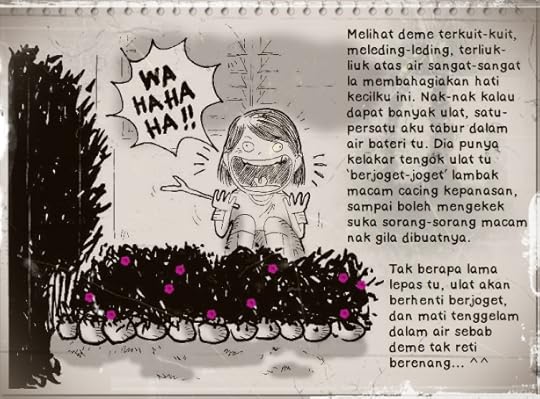 WA
HA HA
HA!!
Melihat deme terkuit-kuit,
meleding-leding, terliuk-
liuk atas air sangat-sangat
la membahagiakan hati
kecilku ini. Nak-nak kalau
dapat banyak ulat, satu-
persatu aku tabur dalam
air bateri tu. Dia punya
kelakar tengok ulat tu
'berjoget-joget' lambak
macam cacing kepanasan,
sampai boleh mengekek
suka sorang-sorang macam
nak gila dibuatnya.
Tak berapa lama
lepas tu, ulat akan
berhenti berjoget,
dan mati tenggelam
dalam air sebab
deme tak reti
berenang... ^^